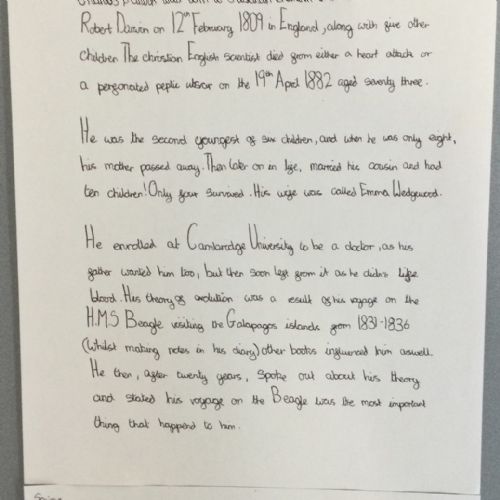 Charles Darwin was born to
Robert Darwin on 12th February 1809 in England, along with five other
children The christian English scientist died from either a heart attack or
a personated peptic ulsor on the 19th April 1882 aged seventy three.
He was the second youngest of six children, and when he was only eight,
his mother passed away. Then later on in life, married his cousin and had
ten children! Only four survived. His wife was called Emma Wedgewood.
He enrolled at Cambridge University to be a doctor, as his
father wanted him too, but then soon left from it as he didn't like
blood. His theory of evolution was a result of his voyage on the
H.M.S Beagle visiting the Galapagos islands from 1831-1836
(whilst making notes in his diary) other books influenced him aswell.
He then, after twenty years, spoke out about his theory
and stated his voyage on the Beagle was the most important
thing that happend to him.